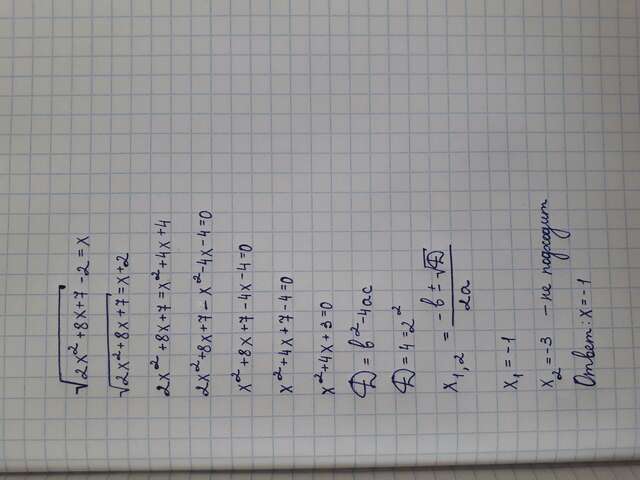 √2x²+8x+7 - 2 = x
√2x²+8x+7 = x+2
2x²+8x+7 = x²+4x+4
2x²+8x+7-x²-4x-4=0
x²+8x+7-4x-4=0
x²+4x+7-4=0
x²+4x+3=0
D = b²-4ac
D = 4 = 2²
x₁,₂ = -b ± √D / 2a
x₁ = -1
x₂ = -3 - не подходит
Ответ: x = -1